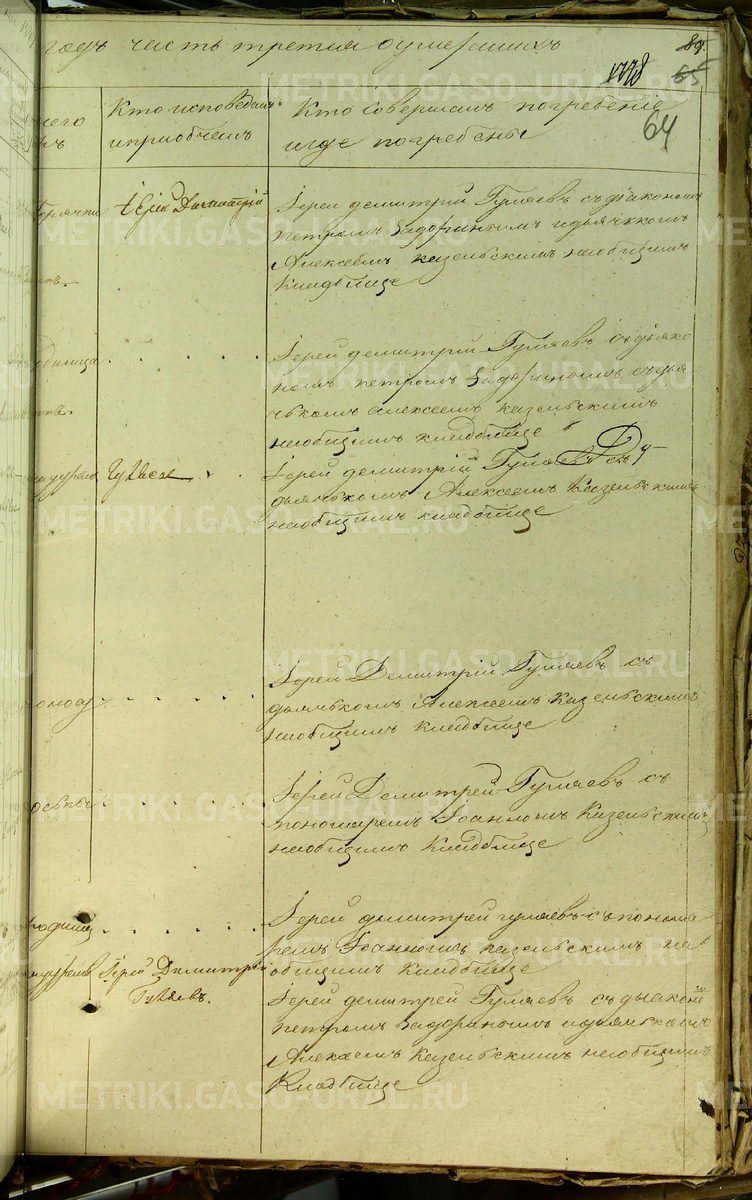 годъ часть третия оумершихъ
89.
65
64
Кто исповедалъ
иприобчалъ
Кто совершалъ погребение
игде погребены
Горячки
Иерей Димитрий
Iерей демитрий Гуляевъ съ дiакономъ
петромъ Задоринымъ идьячкомъ
Алексеемъ казельскимъ наобщемъ
Кладбище
Iерей демитрий Гуляевъ съ дьяко
номъ петромъ Задоринымъ съ дья
чькомъ алексеемъ казельскимъ
наобщимъ кладбище
Гуляевъ
Iерей демитрiй Гуляевъ съ
дьячькомъ Алексеемъ Казельскимъ
наобщимъ кладбище
Iерей Демитрiй Гуляевъ съ
дьячькомъ Алексеемъ Казельскимъ
наобщимъ Кладбище
оспы
Iерей Демитрей Гуляевъ съ
пономаремъ Iоанномъ Казельскимъ
наобщимъ Кладбище
родимца
Iерей димитрей гуляевъ съ понома
ремъ Iоанномъ казельскимъ на
общимъ Кладбище
Iерей Димитрий
Гуляевъ.
Iерей демитрей Гуляевъ съ дьяконо
петромъ Задоринымъ идьячькомъ
Алексеемъ Казельскимъ наобщимъ
Кладбище
METRIKI.GASO-URAL.RU